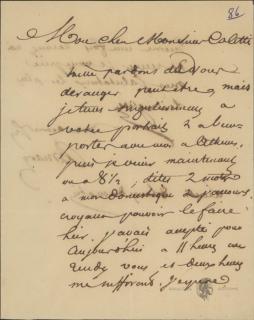 86
Mon cher Monsieur Colette
mille pardons de vous
déranger peut être, mais
je tiens singulièrement à
votre portrait à
porter avec moi à Athènes,
puis je venir maintenant
ou a 8 1/2, dites 2 mots
a mon domestique
croyant pouvoir le faire
hier, j'avais compté pour
aujourd'hui a 11 heures un
rendez vous et deux heures
me suffiront,